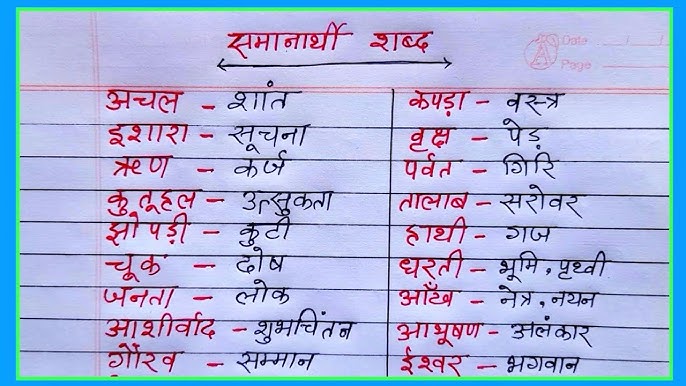 समानार्थी शब्द
Date / /
Page
अचल - शांत
इशारा - सूचना
ऋण - कर्ज
कुतूहल - उत्सुकता
झोपड़ी - कुटी
चूक - दोष
जनता - लोक
आशीर्वाद - शुभचिंतन
गौरव - सम्मान
कपड़ा - वस्त्र
वृक्ष - पेड़
पर्वत - गिरि
तालाब - सरोवर
हाथी - गज
धरती - भूमि, पृथ्वी
आँख - नेत्र, नयन
आभूषण - अलंकार
ईश्वर - भगवान